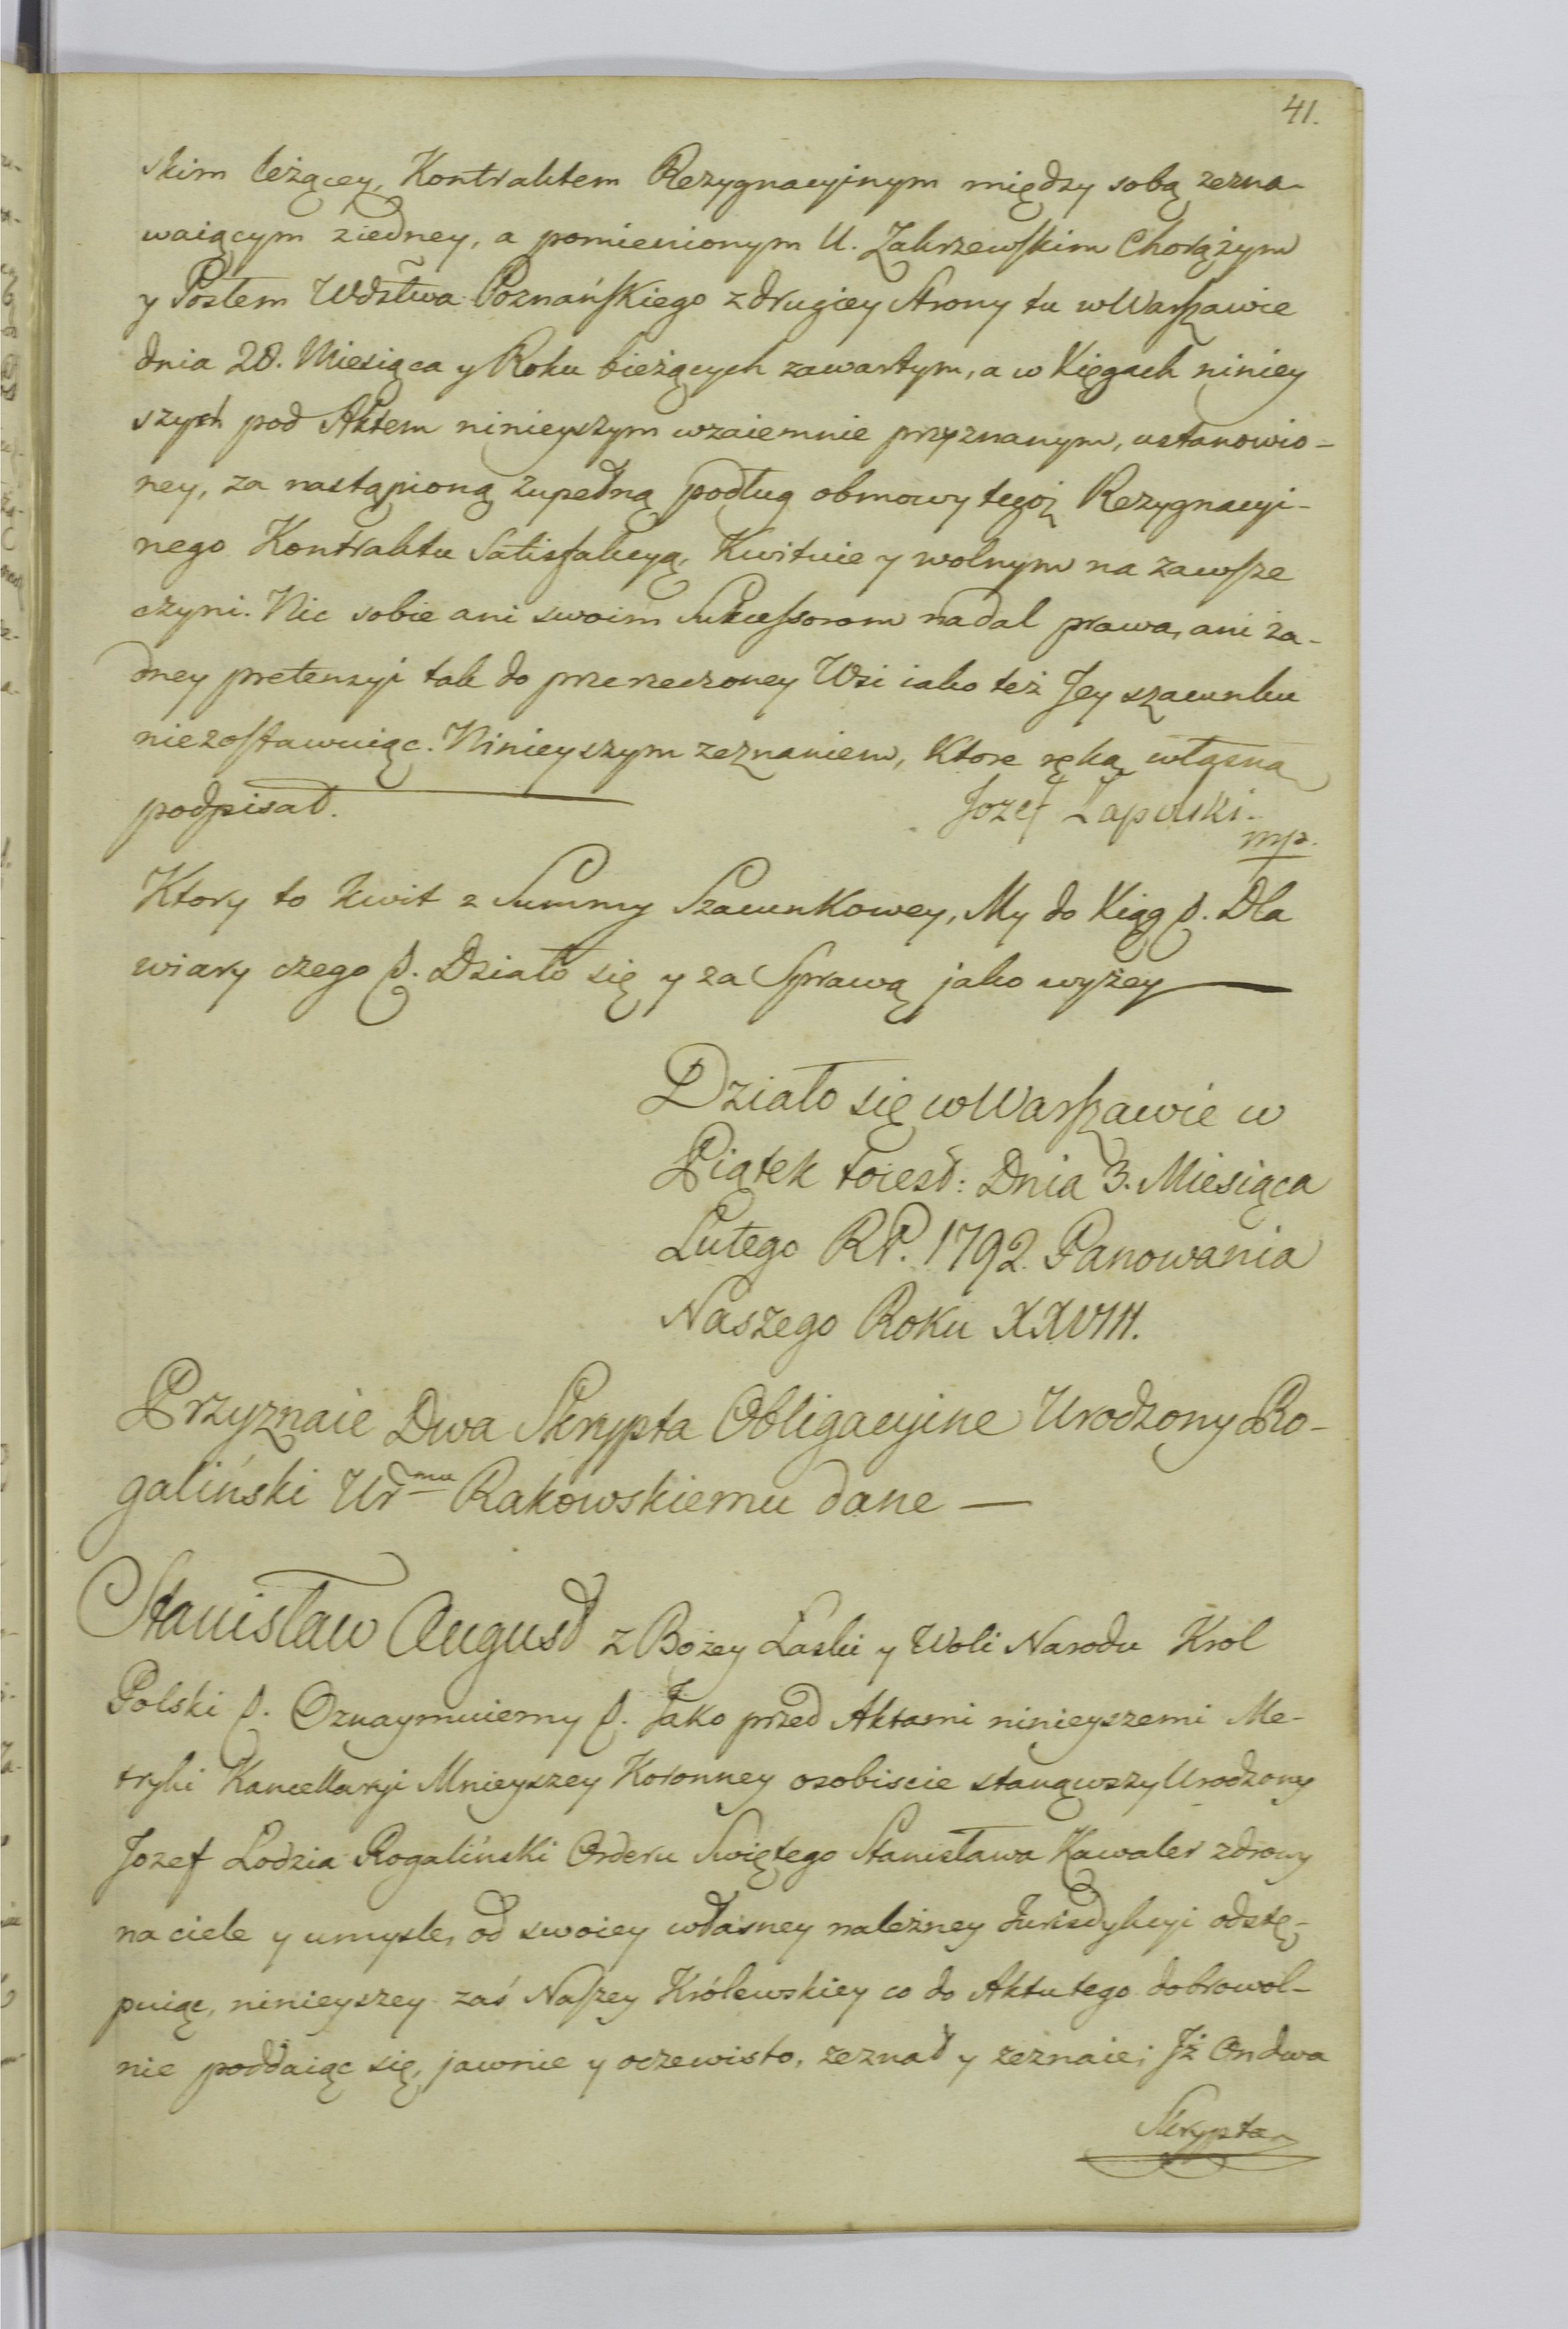 41.
skim leżącey, Kontraktem Rezygnacyjnym między sobą zezna-
waiącym ziedney, a pomienionym U. Zakrzewskim Chorążym
y Posłem Wdztwa Poznańskiego z drugiey Strony tu w Warszawie
dnia 28. Miesiąca y Roku bieżących zawartym, a w Xięgach niniey
szych pod Aktem ninieyszym wzaiemnie przyznanym, ustanowio-
ney, za nastąpioną zupełną podług obmowy tegoż Rezygnacyi-
nego Kontraktu Satisfakcyą, Kwituie y wolnym na zawsze
czyni. Nic sobie ani swoim Sukcessorom nadal prawa, ani ża-
dney pretensyi tak do przerzeczoney Wsi iako też Jey szacunku
niezostawuiąc. Ninieyszym zeznaniem, Ktore ręką własną
podpisał. Jozef Zapolski.
mp.
Ktory to kwit z Summy Szacunkowey, My do Xiąg &. Dla
wiary czego &. Działo się y za Sprawą jako wyżey
Działo się w Warszawie w
Piątek toiest: Dnia 3. Miesiąca
Lutego RP. 1792. Panowania
Naszego Roku XXVIII.
Przyznaie Dwa Skrypta Obligacyine Urodzony Ro-
galiński Ur͠mu Rakowskiemu dane —
Stanisław August z Bożey Łaski y Woli Narodu Krol
Polski &. Oznaymuiemy &. Jako przed Aktami ninieyszemi Me-
tryki Kancellaryi Mnieyszey Koronney osobiscie stanąwszy Urodzony
Jozef Łodzia Rogaliński Orderu Swiętego Stanisława Kawaler zdrowy
na ciele y umysle, od swoiey własney należney Jurisdykcyi odstę-
puiąc, ninieyszey zaś Naszey Królewskiey co do Aktu tego dobrowol-
nie poddaiąc się, jawnie y oczewisto, zeznał y zeznaie; Jż On dwa
Skrypta